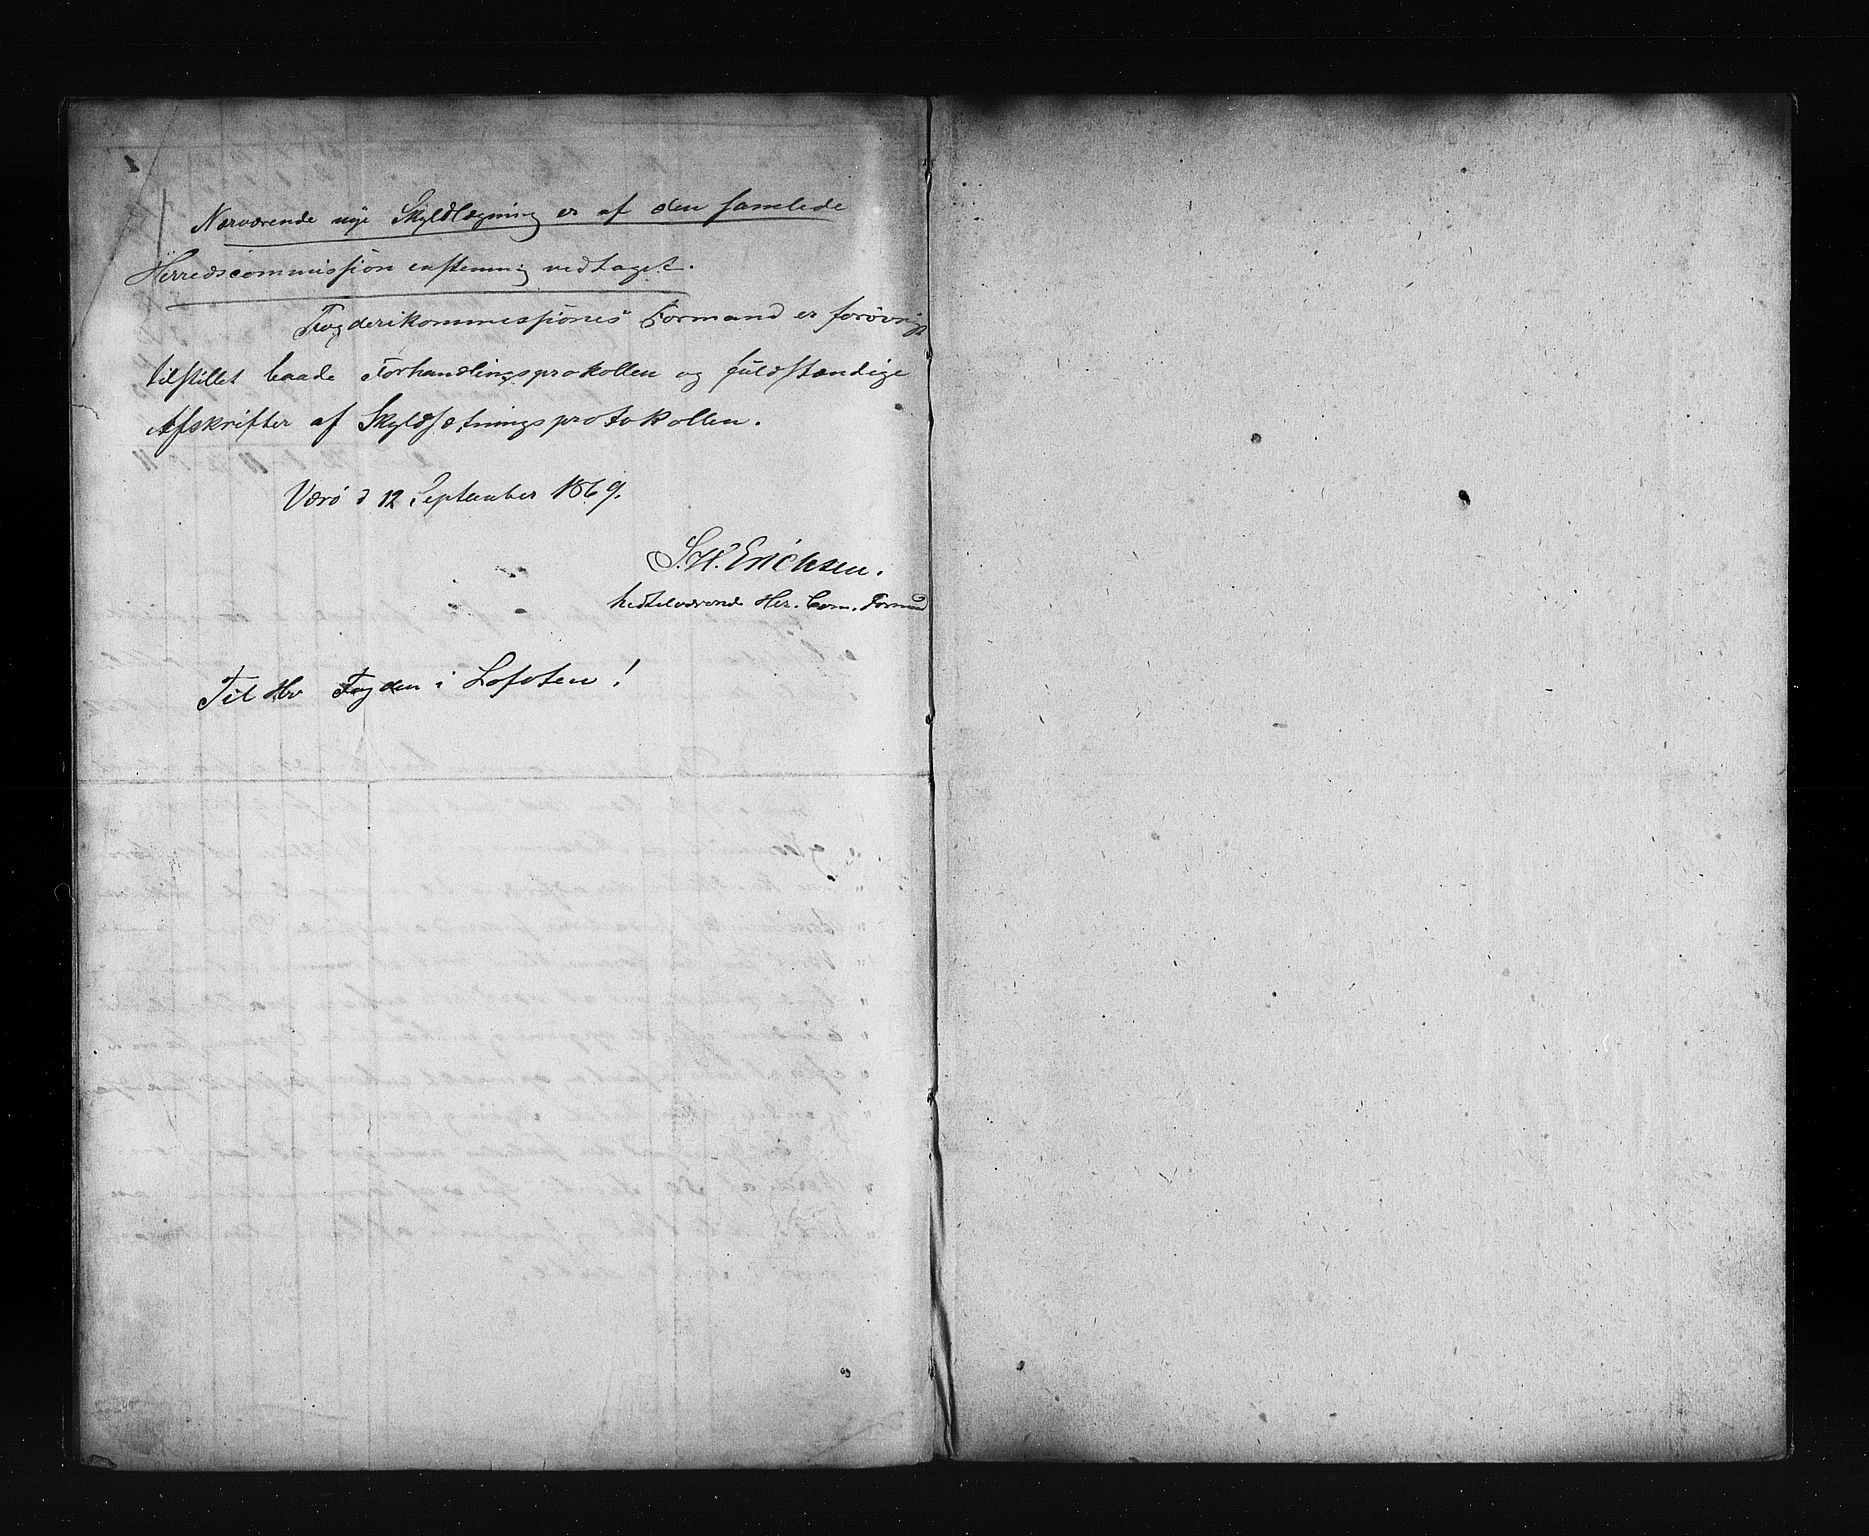 Nærværende nye Skyldlægning er af den samlede
Herredscommission enstemmig vedtaget.
Fogderikommissionens Formand er forøvrigt
tilstillet baade Forhandlingsprokollen og fuldstændige
Afskrifter af Skyldsætningsprotokollen.
Værø d 12 September 1869.
S. H. Erichsen.
hedtilværende Her. Com. Formand
Til Hr Fogden i Lofoten!